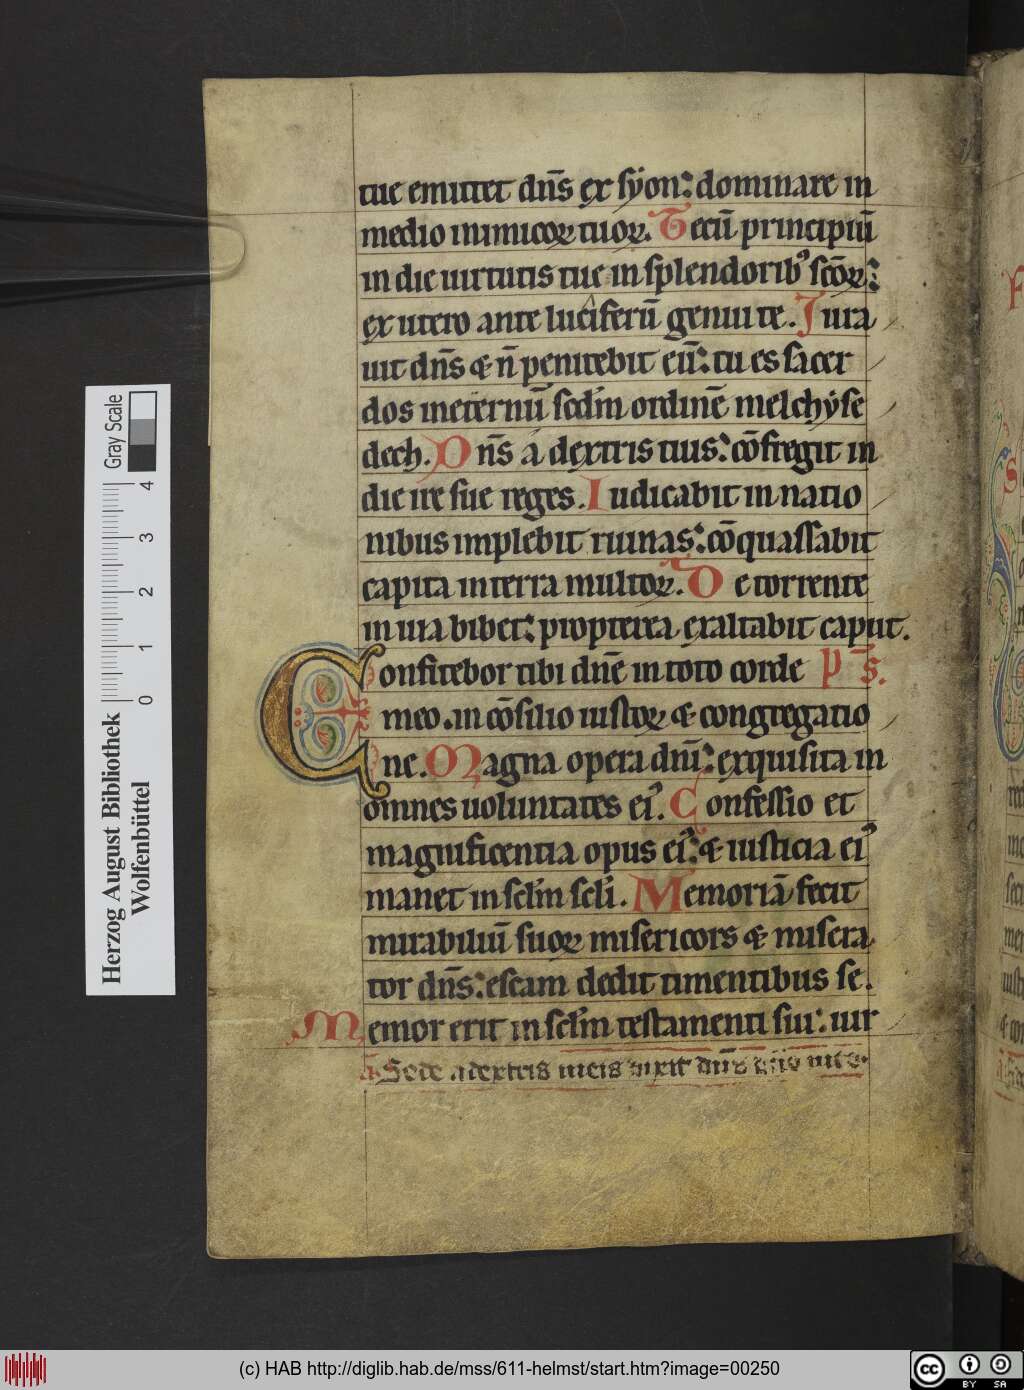 tue emittet dn̄s ex sẏon: dominare in
medio inimicoꝝ tuoꝝ. Tecū principiū
in die uirtutis tue in splendorib; scōꝝ:
ex utero ante luciferū genui te. Iura
uit dn̄s & n̄ penitebit eū: tu es sacer
dos ineternū scd̄m ordinē melchẏse
dech. Dn̄s a dextris tuis: cōfregit in
die ire sue reges. Iudicabit in natio
nibus implebit ruinas: cōquassabit
capita in terra multoꝝ. De torrente
in uia bibet: propterea exaltabit caput.
Confitebor tibi dn̄e in toto corde p̄s.
meo. in cōsilio iustoꝝ & congregatio
ne. Magna opera dn̄i: exquisita in
omnes uoluntates ei᾿. Confessio et
magnificentia opus ei᾿: & iusticia ei᾿
manet in sclm̄ scli. Memoriā fecit
mirabiliū suoꝝ misericors & misera
tor dn̄s: escam dedit timentibus se.
Memor erit in sclm̄ testamenti sui: uir
a. Sede a dextris meis dixit dn̄s dn̄o meo.
Herzog August Bibliothek
Wolfenbüttel
0 1 2 3 4
Gray Scale
(c) HAB http://diglib.hab.de/mss/611-helmst/start.htm?image=00250
cc BY SA